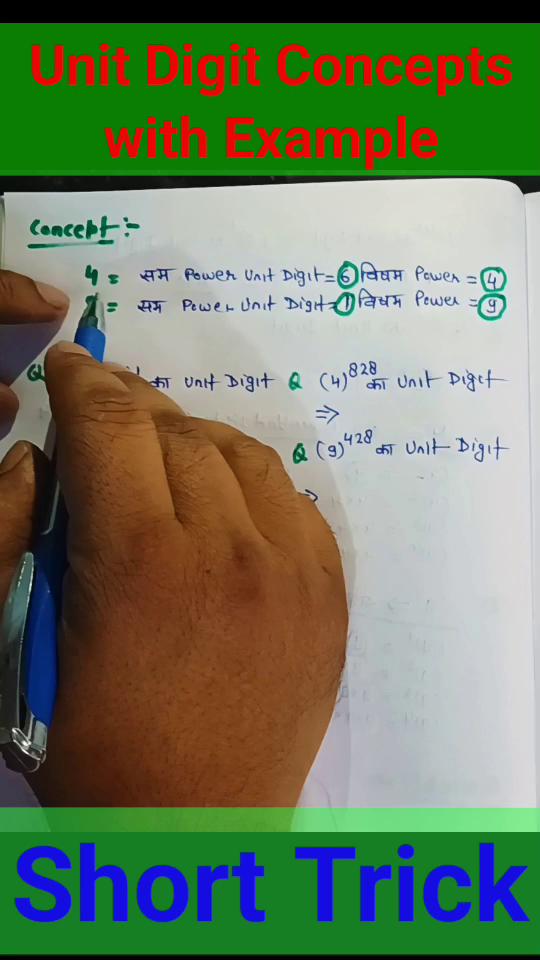 Unit Digit Concepts
with Example
Concept :-
4 = सम Power Unit Digit = 6 विषम Power = 4
= सम Power Unit Digit = 1 विषम Power = 9
Q का Unit Digit Q (4)^828 का Unit Digit
⇒
Q (9)^428 का Unit Digit
⇒
Short Trick